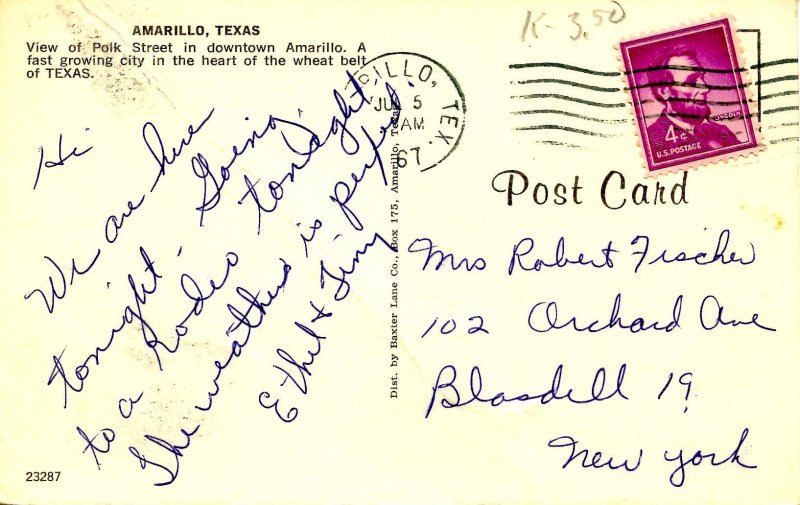 AMARILLO, TEXAS
View of Polk Street in downtown Amarillo. A
fast growing city in the heart of the wheat belt
of TEXAS.
Hi
We are here
tonight, Going
to a Rodeo tonight
The weather is perfect.
Ethel & Jim
23287
Dist. by Baxter Lane Co., Box 175, Amarillo, Texas
RILLO, TEX.
5
AM
67
K-3.50
LINCOLN
4¢
U.S. POSTAGE
Post Card
Mrs Robert Fischer
102 Orchard Ave
Blasdell 19,
New York